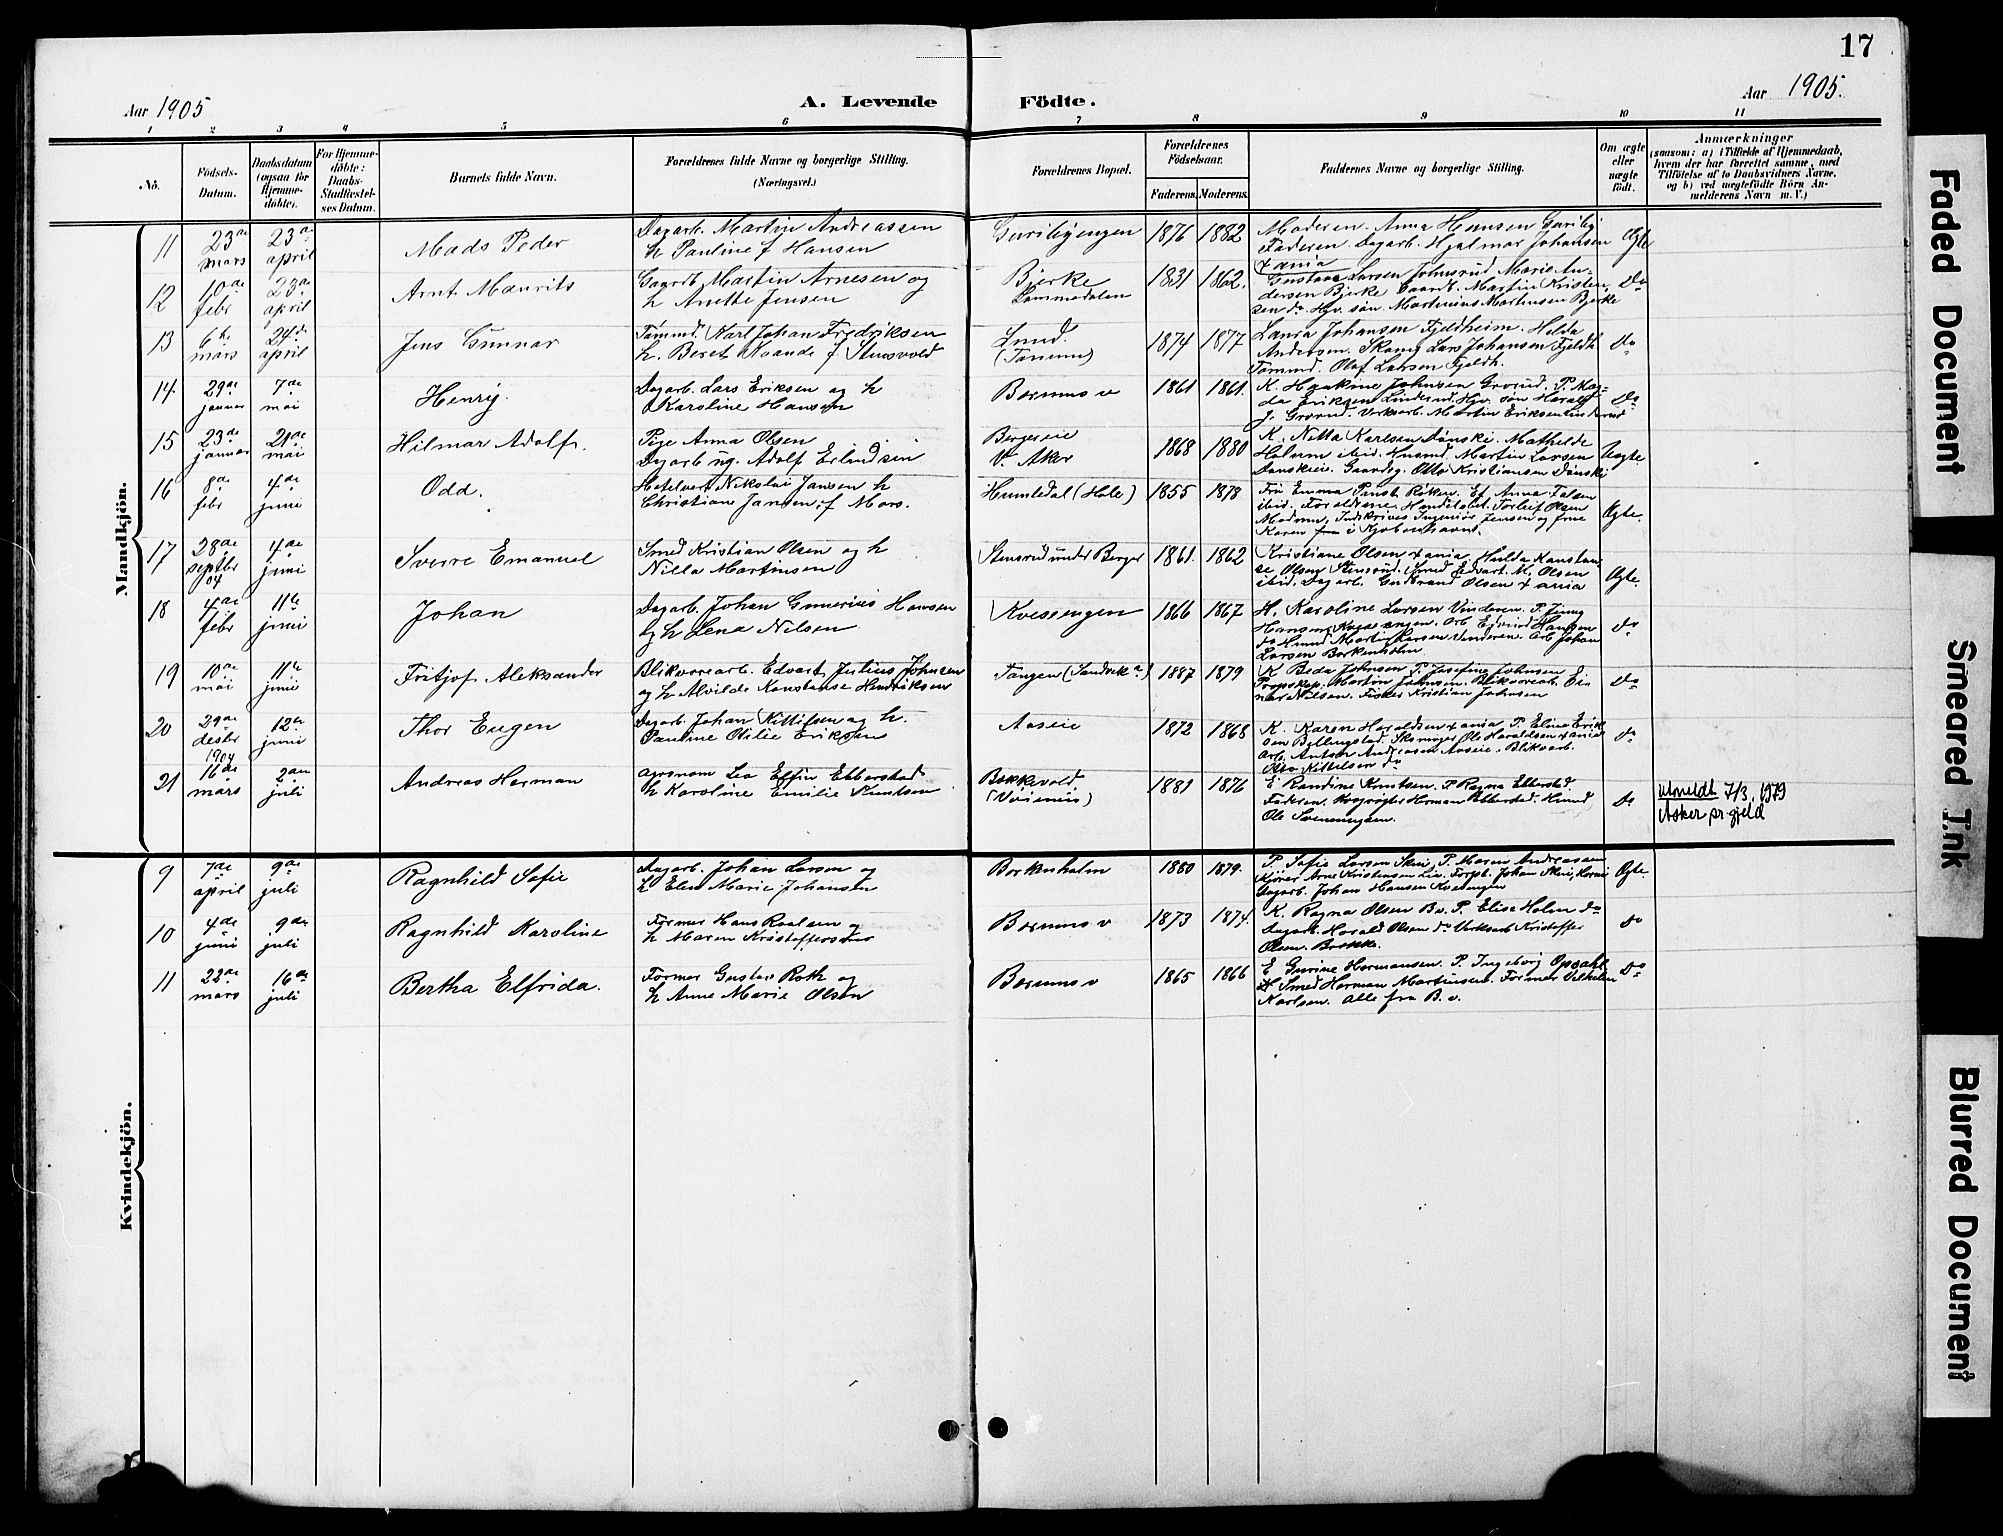 17
Aar 1905
A. Levende Födte.
Aar 1905.
1 2 3 4 5 6 7 8 9 10 11
No.
Födsels-
Datum.
Daabsdatum
(ogsaa for
Hjemme-
döbte).
For Hjemme-
döbte:
Daabs-
Stadfæstel-
ses Datum.
Barnets fulde Navn.
Forældrenes fulde Navne og borgerlige Stilling.
(Næringsvei.)
Forældrenes Bopæl.
Forældrenes
Födselsaar.
Faderens. Moderens.
Faddernes Navne og borgerlige Stilling.
Om ægte
eller
uægte
födt.
Anmærkninger
(saasom: a) i Tilfælde af Hjemmedaab,
hvem der har forrettet samme, med
Tilföielse af to Daabsvidners Navne,
og b) ved uægtefödte Börn An-
melderens Navn m. V.)
Mandkjön.
11
23de
mars
23de
april
Mads Peder
Dagarb. Martin Andreassen
h Pauline f Hansen
Guribyengen
1876 1882
Moderen. Anna Hansen Guriby
Faderen. Dagarb. Hjalmar Johansen
Ægte
12
10de
febr
23de
april
Arnt Maurits
Gaardb Martin Arnesen og
h Anette Jensen
Bjerke
Lommedalen
1831 1862.
Gustava Larsen Johnsrud Marie An-
dersen Bjerke Gaardb. Martin Kristen-
sen do Hjv. søn Martinius Martinsen Bjerke
Do
13
6te
mars
24de
april
Jens Gunnar
Tømmd. Karl Johan Fredriksen
h. Beret Kaande f. Stensvold
Lund.
(Tanum)
1874 1877
Laura Johansen Fjeldheim. Hulda
Andersen. Skomg Lars Johansen Fjeldh
Tømmd. Olaf Larsen Fjeldh.
Do
14.
29de
januar
7de
mai
Henry.
Dagarb. Lars Eriksen og h
Karoline Hansen
Bærums v
1861 1861.
K. Haakine Johnsen Grorud. P. Mag-
da Eriksen Linderud. Hjv. søn Harald
J. Grorud. Verksarb. Martin Eriksen Linderud
Do
15
23de
januar
21de
mai
Hilmar Adolf.
Pige Anna Olsen
Dagarb ug. Adolf Erlandsen
Bergseie
V. Aker
1868 1880
K. Nitta Karlsen Dønski. Mathilde
Holum ibid. Husmd Martin Larsen
Dønskeie. Gaardsg. Otto Kristiansen Dønski
Uægte.
16
8de
febr
4de
juni
Odd.
Hotelvert Nikolai Jansen h
Christiane Jansen, f Mørs.
Humledal (Hole)
1855 1878
Fru Emma Paust Røken. Ef. Anna Falsen
ibid. Forældrene. Handelsbet. Torleif Olsen
Modum, Indskrives Ingeniør Jensen og frue
Karen fra i Kjøbenhavn.
Ægte.
17
28de
septbr
04
4de
juni
Sverre Emanuel
Smed Kristian Olsen og h
Nilla Martinsen
Stensrud under Berger
1861. 1862
Kristiane Olsen Xania, Hulda Konstan-
se Olsen Stensrud. Smed Edvart M. Olsen
ibid. Dagarb. Gudbrand Olsen Xania
Ægte.
18
4de
febr
11te
juni
Johan
Dagarb. Johan Gunerius Hansen
og h Lena Nilsen
Kvesengen
1866 1867
H. Karoline Larsen Vinderen. P. Jenny
Hansen Kvesengen. Arb Ejvind Hansen
do Husmd Martin Larsen Vinderen. Arb Johan
Larsen Borkenholm.
do
19
10de
mai
11te
juni
Fritjof Aleksander
Blikvarearb. Edvart Julius Johnsen
og h Alvilde Konstanse Hendriksen
Tangen (Sandvika)
1887 1879
K Beda Johnsen P Josefine Johnsen
Martin Johnsen. Blikvarearb. Ei-
nar Nilsen. Fisker Kristian Johnsen
do
20
29de
desbr
1904
12te
juni
Thor Eugen
Dagarb. Johan Kittilsen og h.
Pauline Otilie Eriksens
Aaseie
1872 1868
K. Karen Haraldsen Xania P. Eline Erik-
sen Billingstad. Skomager Ole Haraldsen Xania
Arb. Anton Andreasen Aaseie. Bliksarb.
Otto Kittelsen do
do
21
16de
mars
2den
juli
Andreas Herman
Agronom Leo Elfin Ebberstad
h Karoline Emilie Knutsen
Bækkevold.
(Vøienenis)
1881 1876
E Randine Knutsen. P Ragna Ebberstad.
Faderen. Herman Ebberstad. Husmd
Ole Svenningsen.
Do
utmeldt 7/3 1979
Asker pr. gjeld
Kvindekjön.
9
7de
april
9de
juli
Ragnhild Sofie
Dagarb. Johan Larsen og
h Elen Marie Johansen
Borkenholm
1880 1879.
P. Sofie Larsen Skui, P. Maren Andreassen
Kjører Arne Kristensen Lin. Forpt. Johan Skui,
Dagarb. Johan Hansen Kvesengen
Ægte.
10
4de
juni
9de
juli
Ragnhild Karoline
Former Hans Roalsen og
h Maren Kristoffersens
Bærums v
1873 1874.
K. Ragna Olsen B v. P. Elise Holm do
Dagarb. Harald Olsen do Verksarb Kristoffer
Olsen. Brække.
do
11
22de
mars
16de
juli
Bertha Elfrida.
Former Gustav Roth og
h Anne Marie Olsen
Bærums v
1865 1866
E Gurine Hermansen. P. Ingeborg Opsahl
Smed Herman Martinsen. Former Vilhelm
Karlsen. Alle fra B. v.
Do
Faded Document
Smeared Ink
Blurred Document